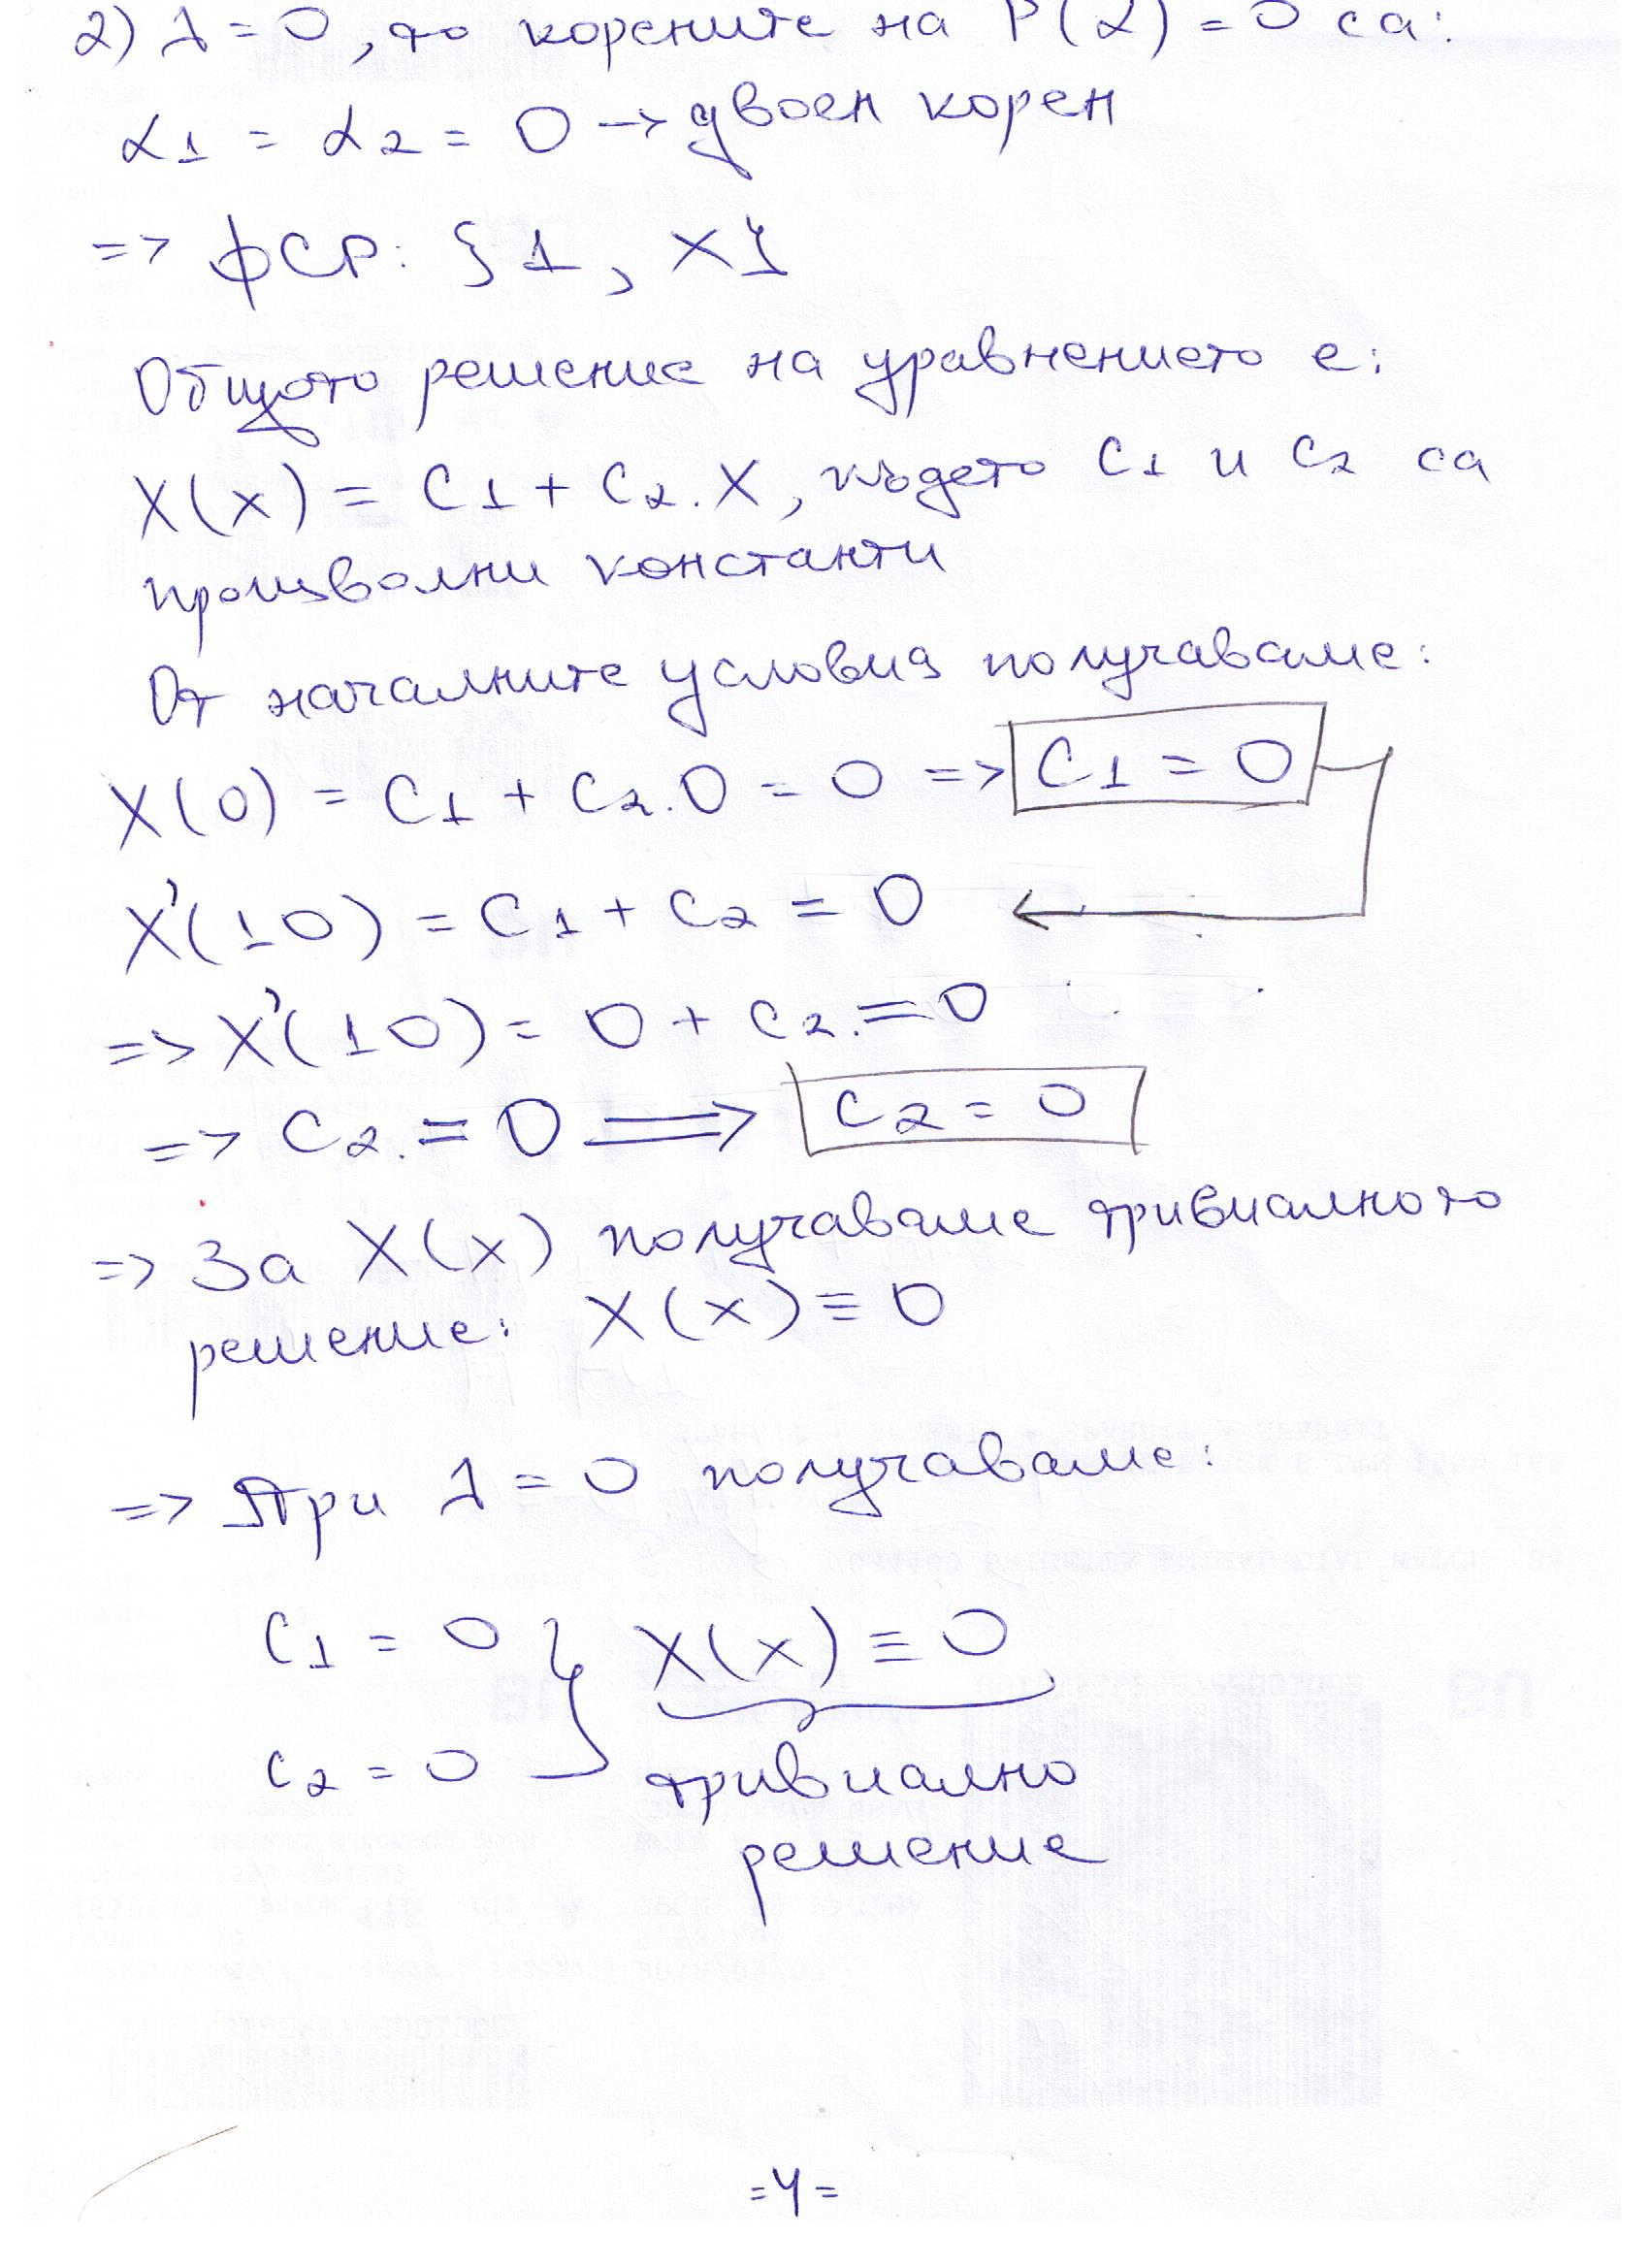 2) λ = 0, то корените на P(α) = 0 са:
α1 = α2 = 0 → двоен корен
=> ФСР: {1, x}
Общото решение на уравнението е:
X(x) = C1 + C2.x, където C1 и C2 са
произволни константи
От началните условия получаваме:
X(0) = C1 + C2.0 = 0 => C1 = 0
X'(10) = C1 + C2 = 0 ←
=> X'(10) = 0 + C2. = 0
=> C2. = 0 => C2 = 0
=> За X(x) получаваме тривиалното
решение: X(x) ≡ 0
=> При λ = 0 получаваме:
C1 = 0 } X(x) ≡ 0
C2 = 0 тривиално
решение
=4=